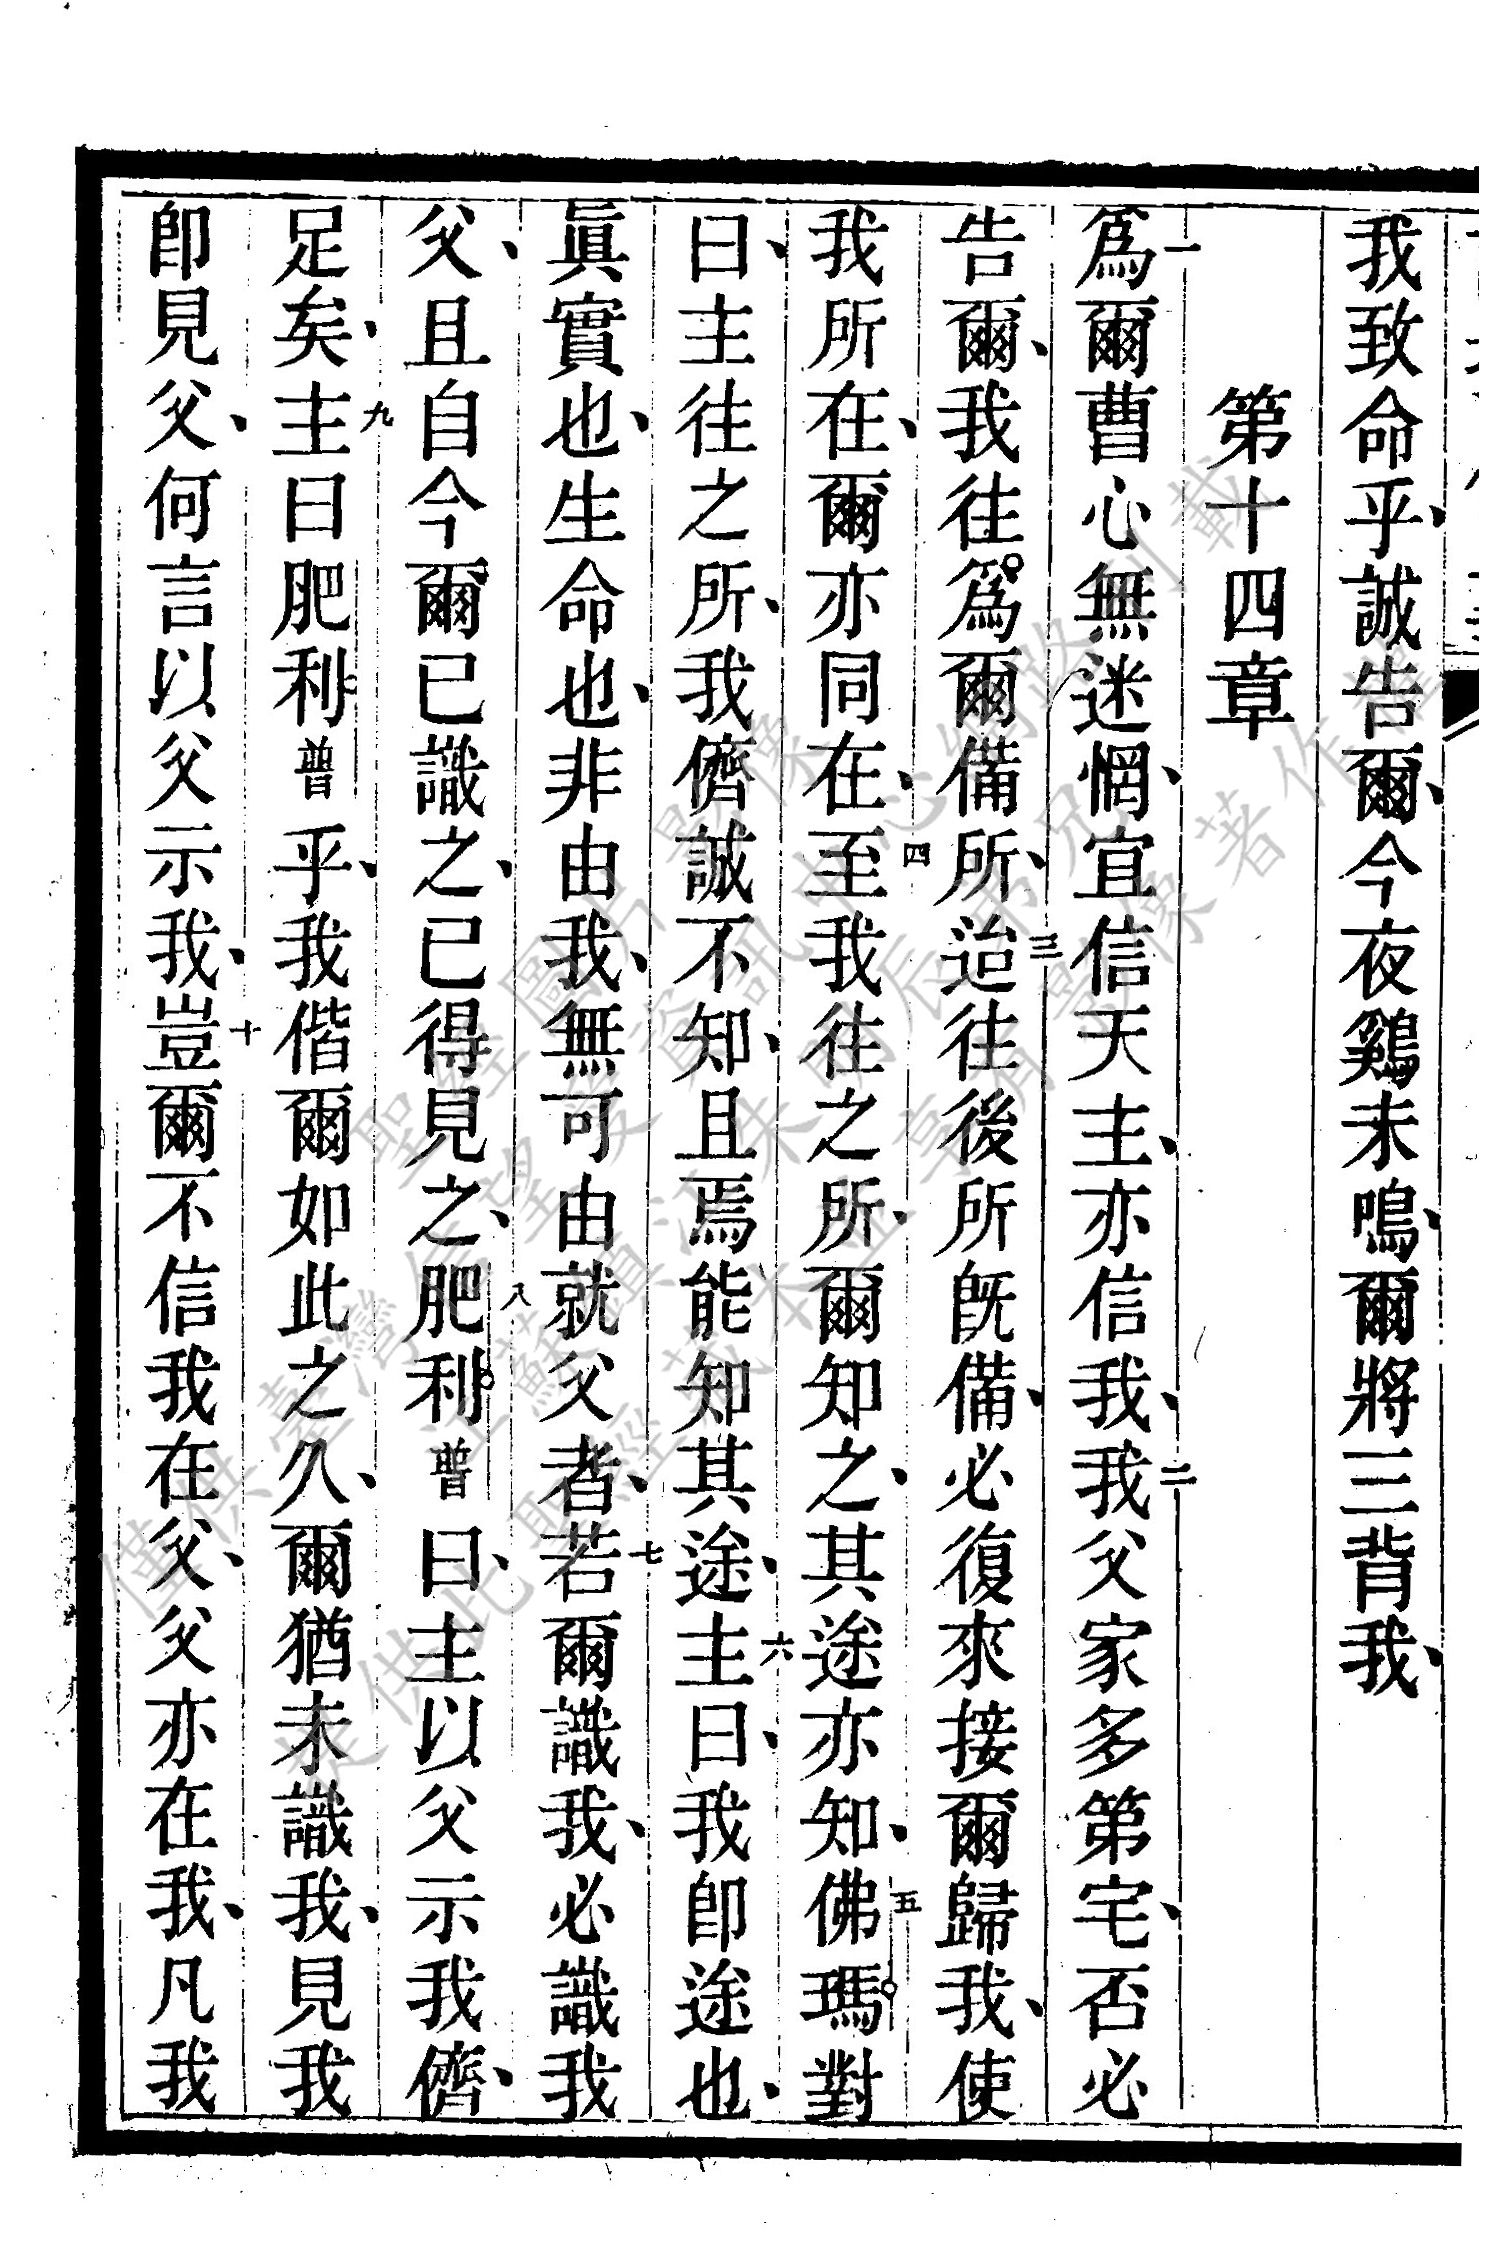 我致命乎、誠告爾、今夜鷄未鳴、爾將三背我、
第十四章
一爲爾曹心無迷惘、宜信天主、亦信我、二我父家多第宅、否必
告爾、我往爲爾備所、三迨往後所旣備、必復來接爾歸我、使
我所在、爾亦同在、四至我往之所、爾知之、其途亦知、五佛瑪對
曰、主往之所、我儕誠不知、且焉能知其途、六主曰、我卽途也、
眞實也、生命也、非由我、無可由就父者、七若爾識我、必識我
父、且自今爾已識之、已得見之、八肥利普曰、主以父示我儕、
足矣、九主曰肥利普乎、我偕爾如此之久、爾猶未識我、見我
卽見父、何言以父示我、十豈爾不信我在父、父亦在我、凡我